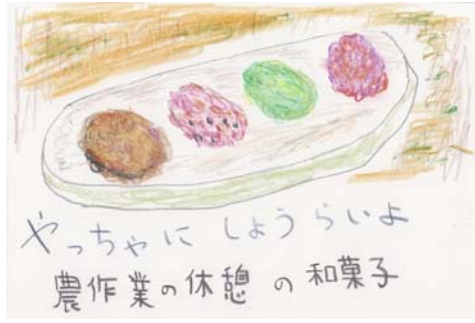 やっちゃに しょうらいよ
農作業の休憩 の 和菓子